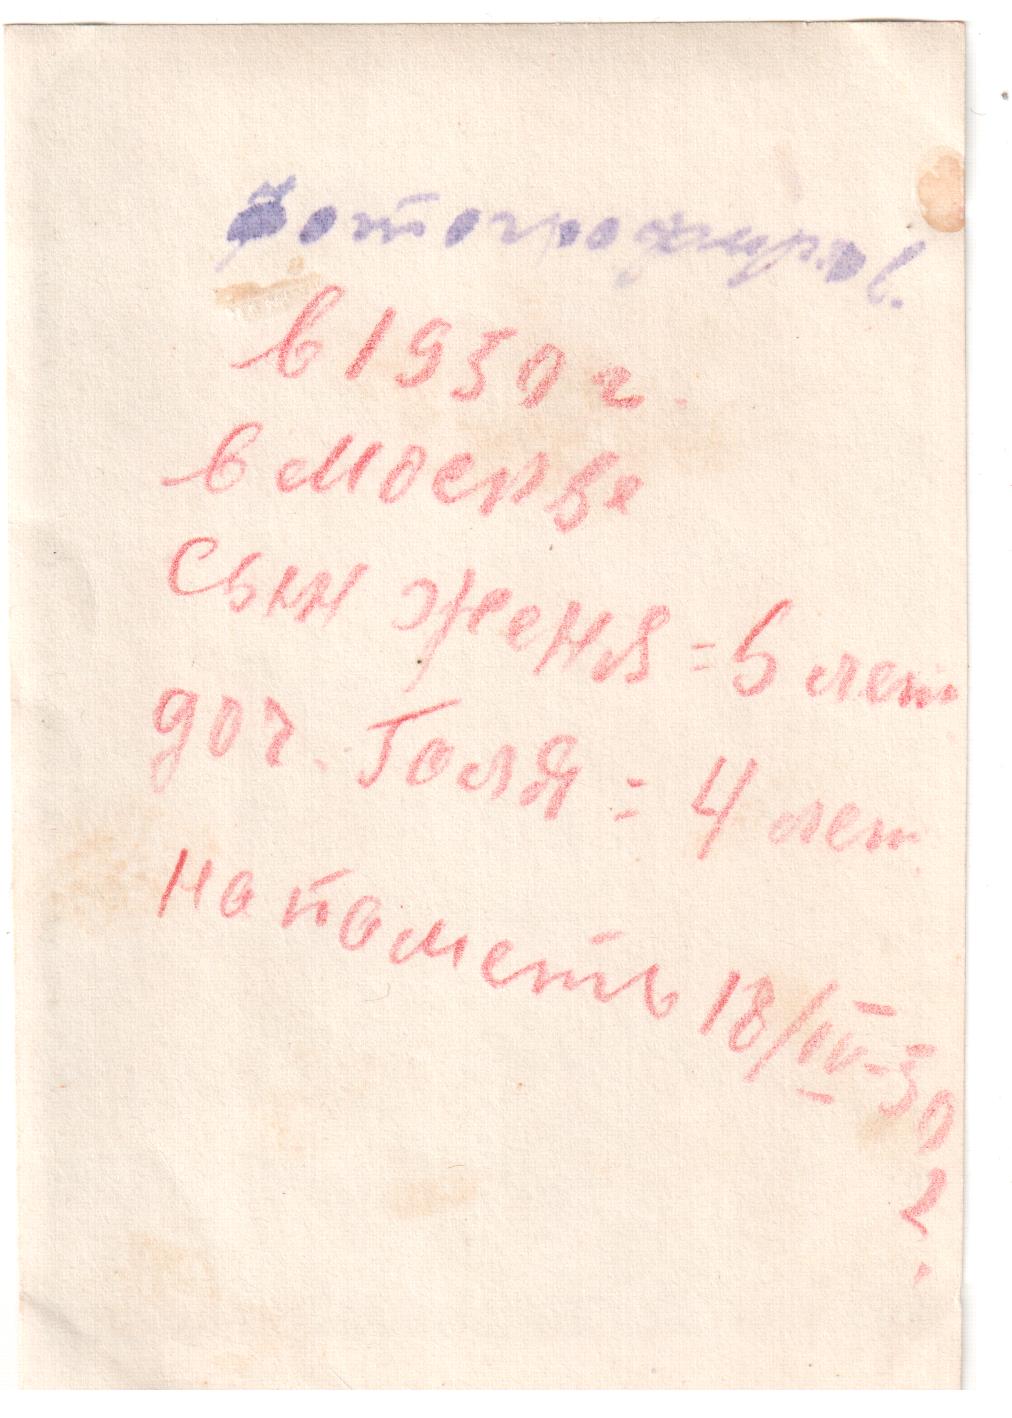 фотографиров.
в 1930 г.
в москве
сын женя = 5 лет
доч. Галя = 4 лет
на пометь 18/IV-30
г.